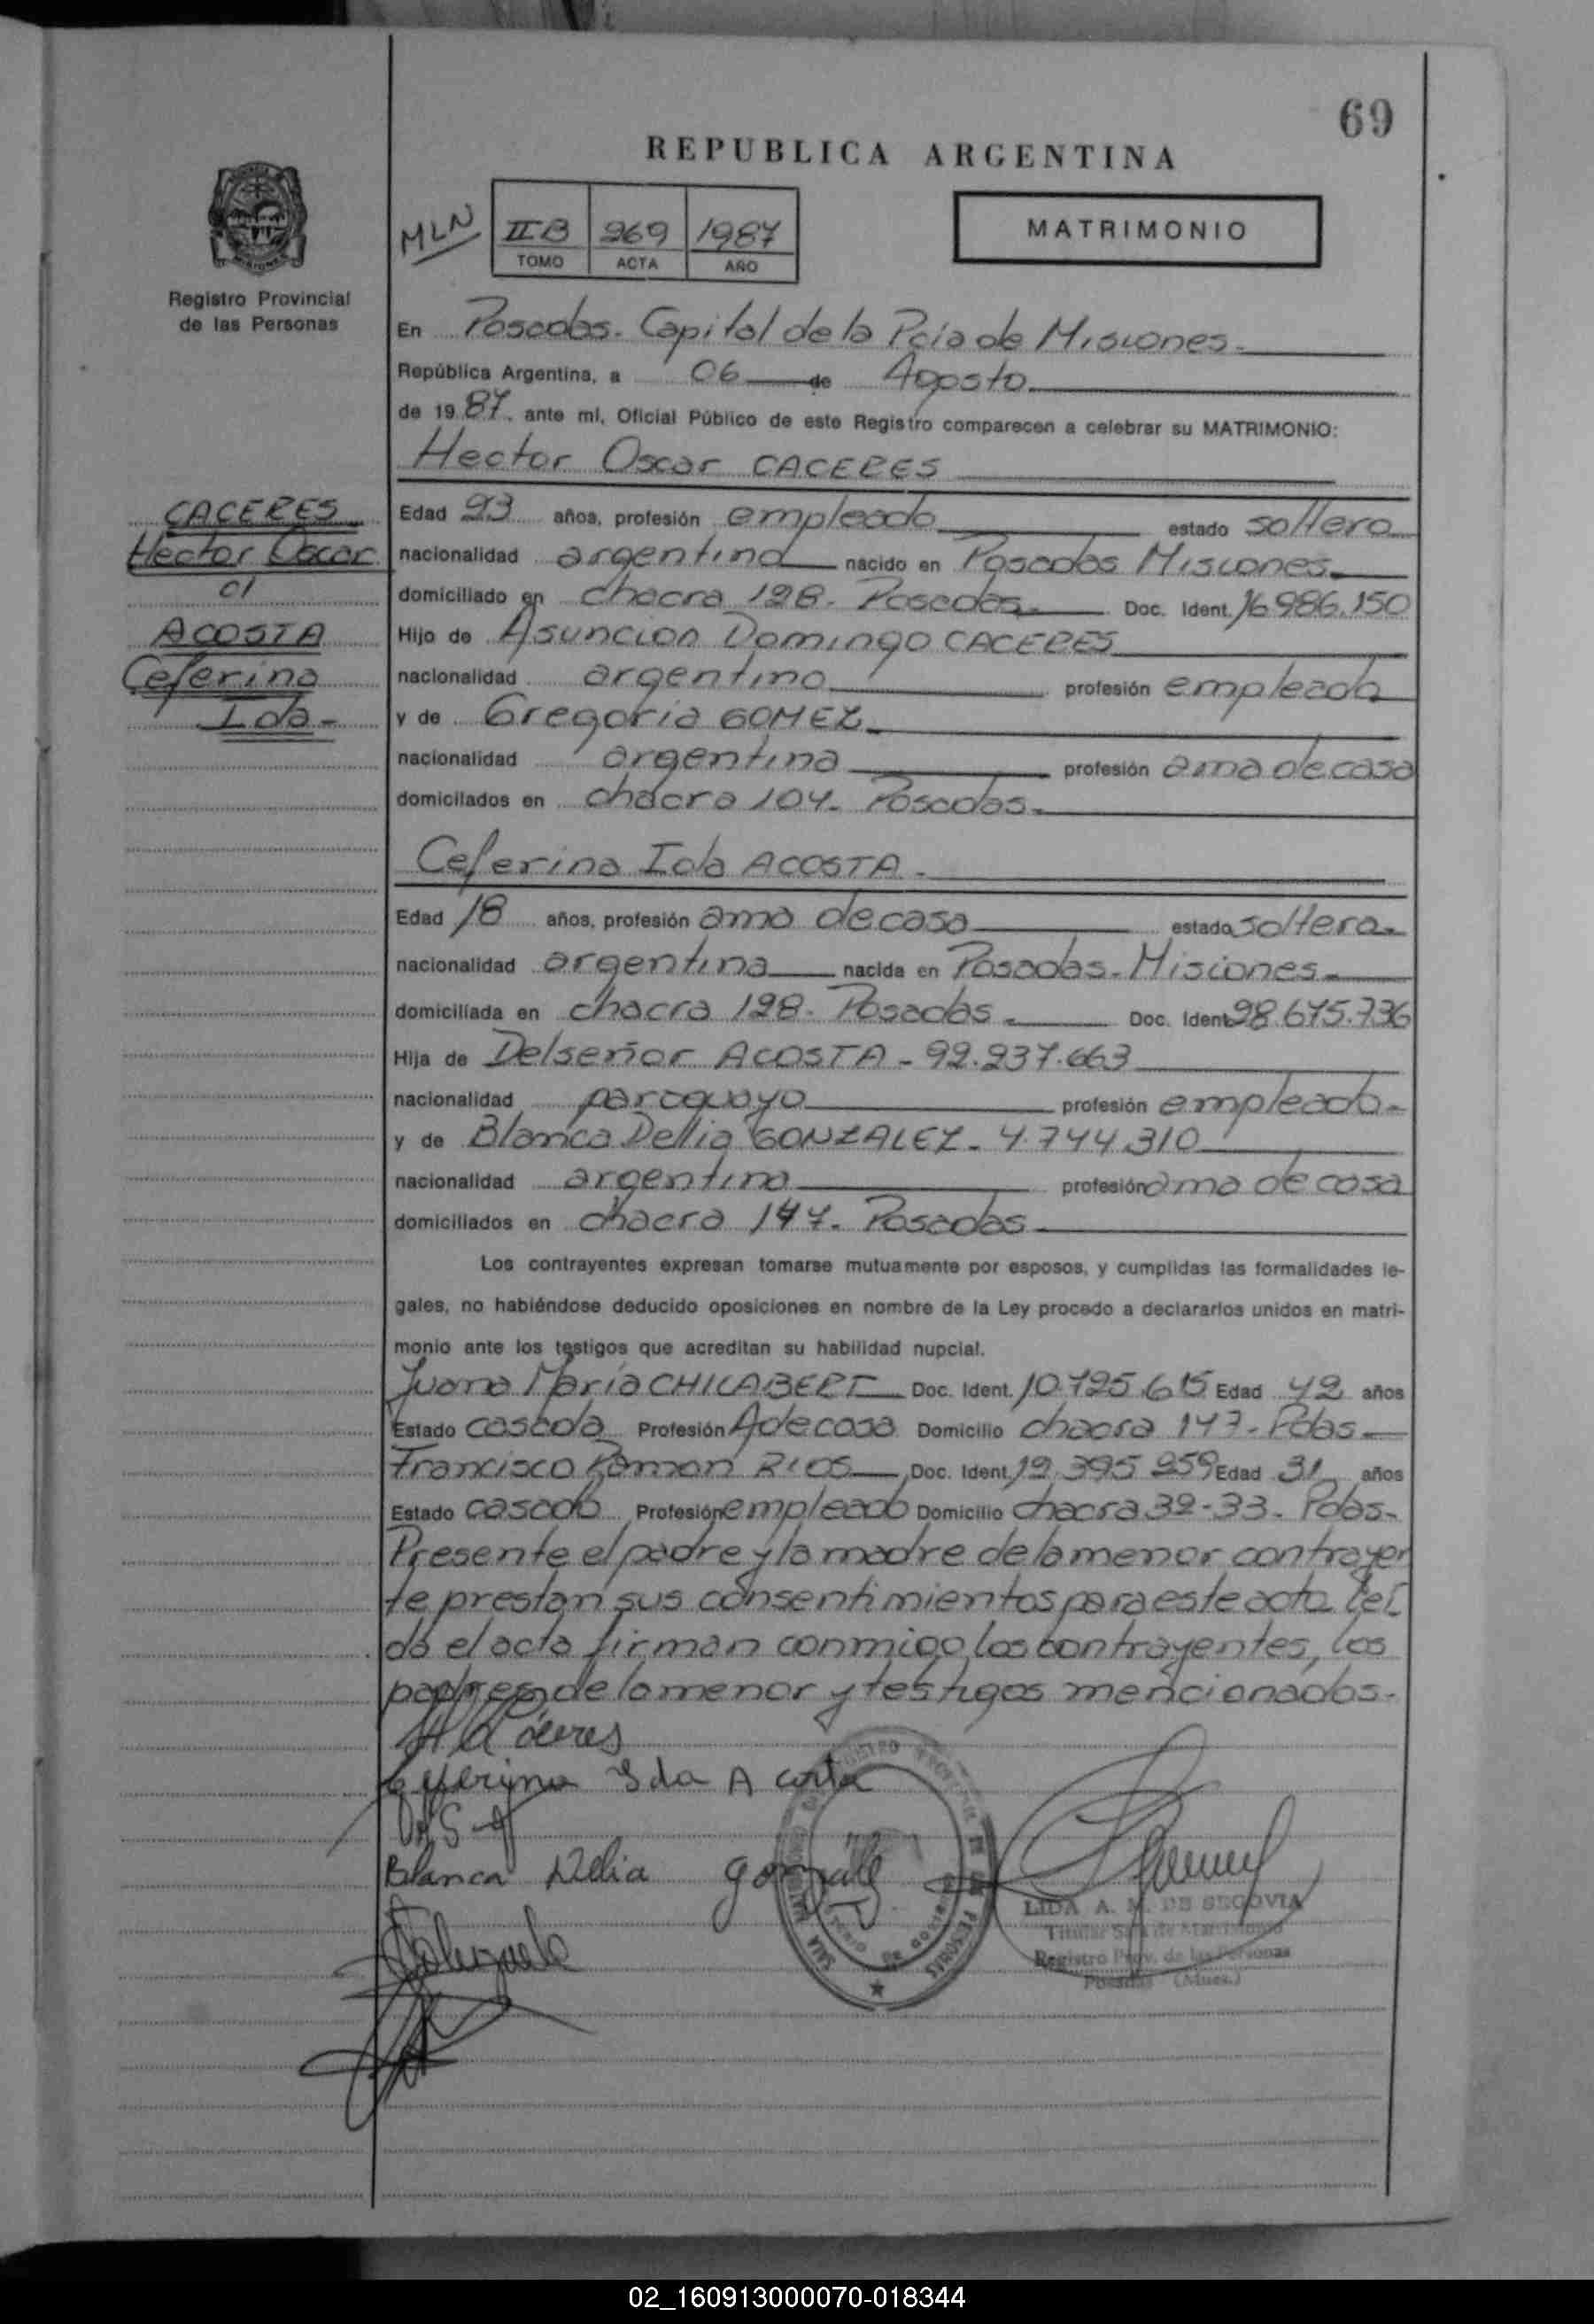 69
REPUBLICA ARGENTINA
MLN
II B 269 1987
TOMO ACTA AÑO
MATRIMONIO
Registro Provincial
de las Personas
En Posadas. Capital de la Pcia de Misiones.
República Argentina, a 06 de Agosto
de 1987. ante mí, Oficial Público de este Registro comparecen a celebrar su MATRIMONIO:
Hector Oscar CACERES
CACERES
Hector Oscar
c/
ACOSTA
Ceferina
Ida-
Edad 23 años, profesión empleado estado soltero
nacionalidad argentina nacido en Posadas Misiones
domiciliado en chacra 128. Posadas. Doc. Ident. 16.986.150
Hijo de Asuncion Domingo CACERES
nacionalidad argentino profesión empleado
y de Gregoria GOMEZ
nacionalidad argentina profesión ama de casa
domicilados en chacra 104. Posadas.
Ceferina Ida ACOSTA.
Edad 18 años, profesión ama de casa estado soltera
nacionalidad argentina nacida en Posadas. Misiones
domiciliada en chacra 128. Posadas. Doc. Ident. 28.675.736
Hija de Delseñor ACOSTA - 92.237.663
nacionalidad paraguayo profesión empleado.
y de Blanca Delia GONZALEZ - 4.744.310
nacionalidad argentina profesión ama de casa
domiciliados en chacra 147. Posadas
Los contrayentes expresan tomarse mutuamente por esposos, y cumplidas las formalidades le-
gales, no habiéndose deducido oposiciones en nombre de la Ley procedo a declararlos unidos en matri-
monio ante los testigos que acreditan su habilidad nupcial.
Juana María CHILABERT Doc. Ident. 10.725.615 Edad 42 años
Estado casada Profesión A de casa Domicilio chacra 147 - Pdas.
Francisco Ramon RIOS Doc. Ident. 12.395 259 Edad 31 años
Estado casado Profesión empleado Domicilio chacra 32-33. Pdas.
Presente el padre y la madre de la menor contrayen
te prestan sus consentimientos para este acto. Leí
da el acta firman conmigo los contrayentes, los
padres de la menor y testigos mencionados.
H Caceres
Ceferina Ida Acosta
Blanca Delia
LIDA A. M. DE SEGOVIA
Titular Sala de Matrimonio
Registro Prov. de las Personas
Posadas (Mnes.)
02_160913000070-018344